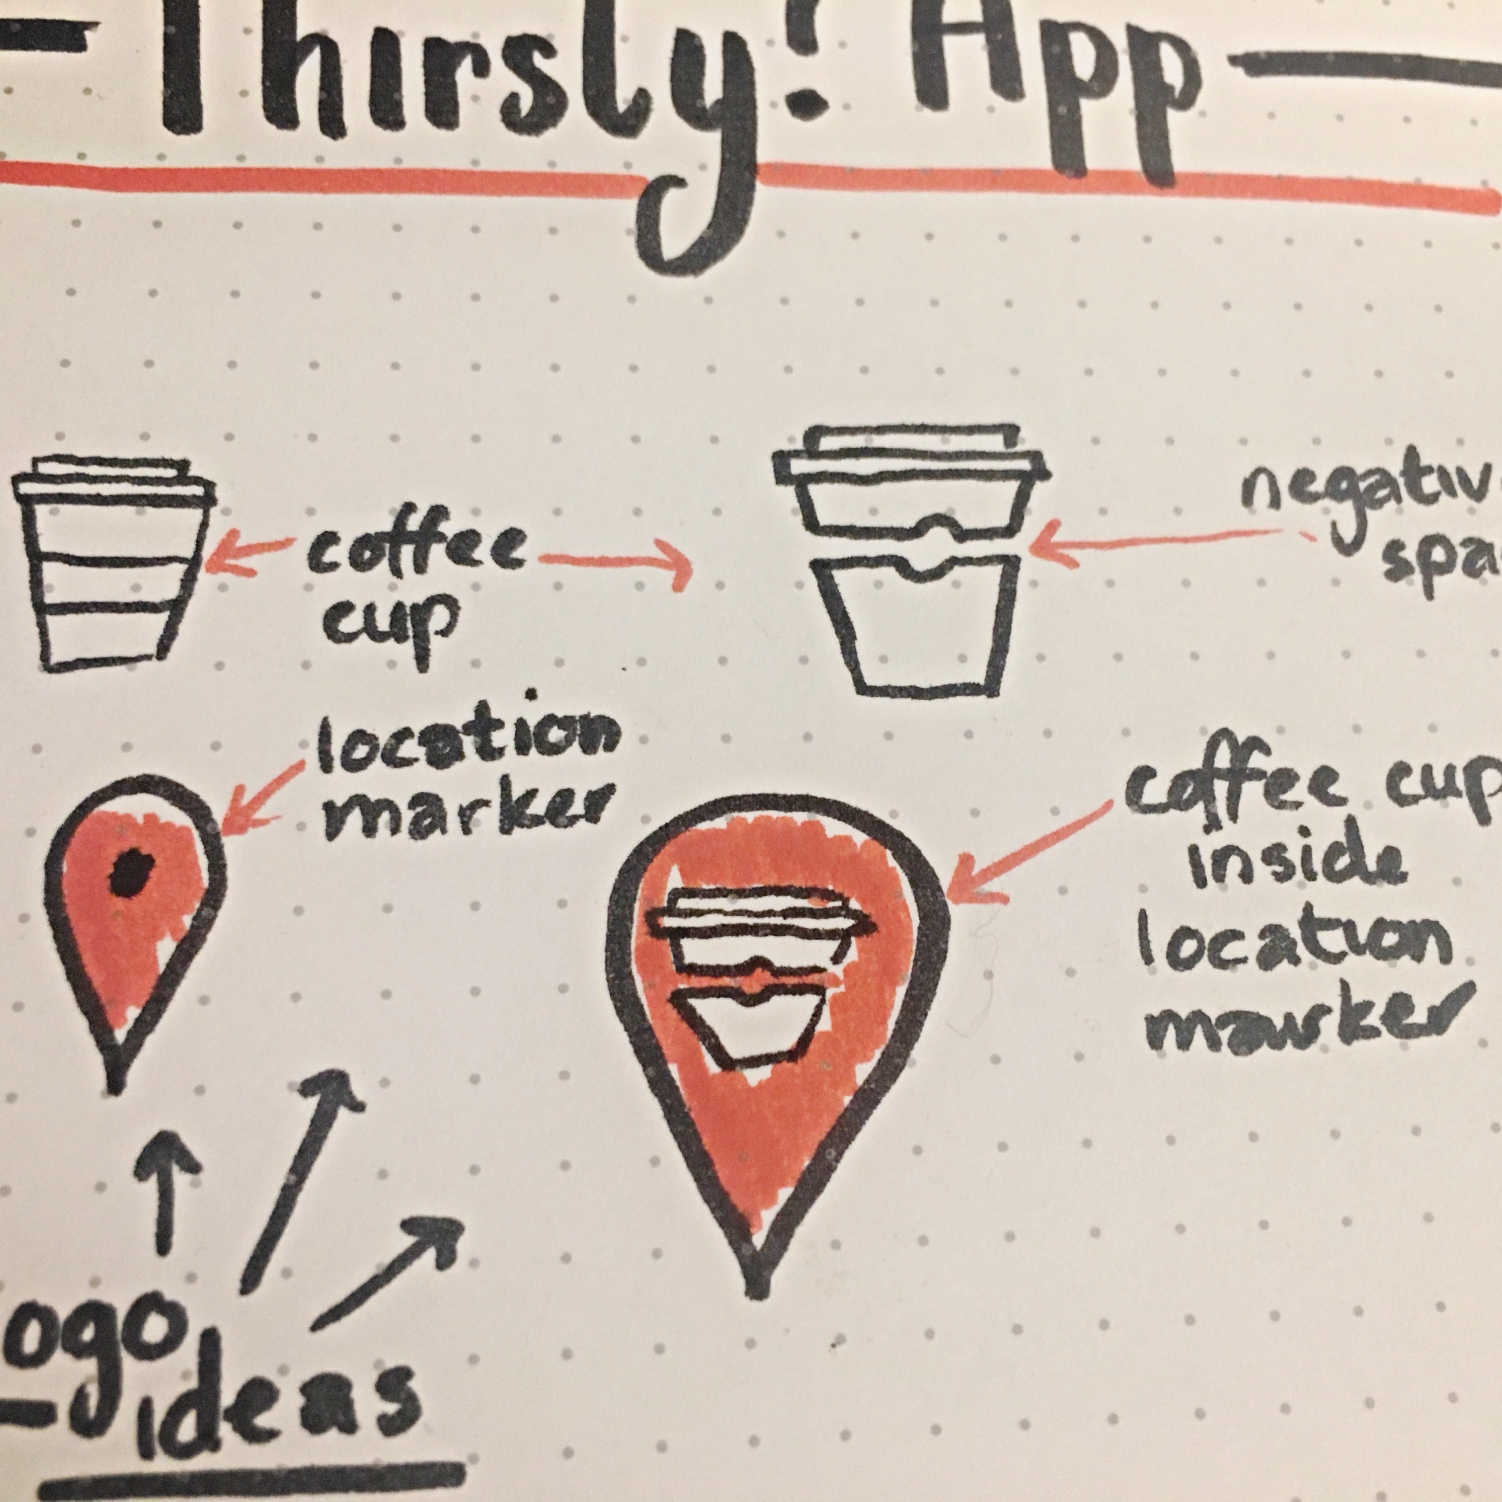 Thirsty! App
coffee
cup
negativ
spa
location
marker
coffee cup
inside
location
marker
ogo
ideas